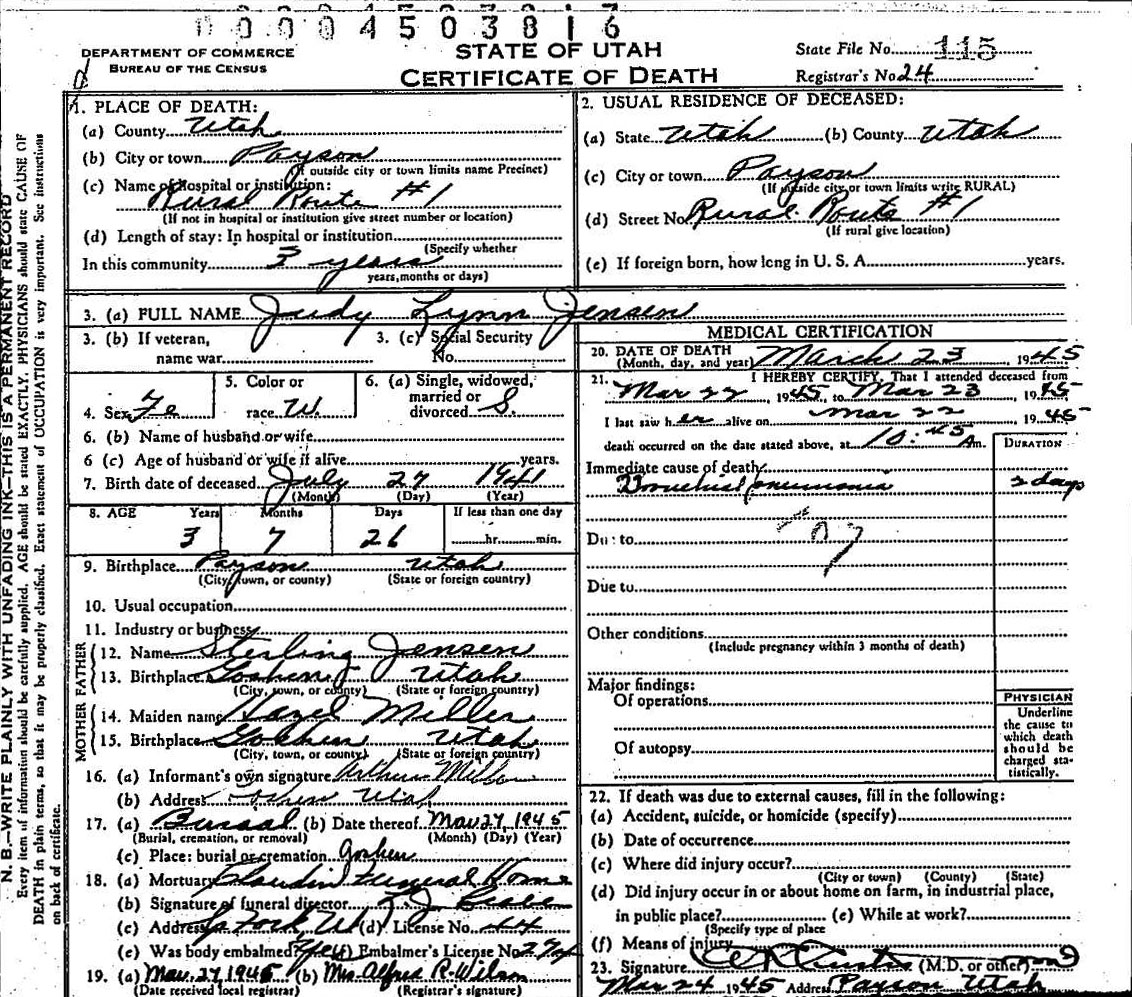 0004503816
DEPARTMENT OF COMMERCE
BUREAU OF THE CENSUS
STATE OF UTAH
CERTIFICATE OF DEATH
State File No. 115
Registrar's No. 24
1. PLACE OF DEATH:
(a) County Utah
(b) City or town Payson
(If outside city or town limits name Precinct)
(c) Name of hospital or institution:
Rural Route #1
(If not in hospital or institution give street number or location)
(d) Length of stay: In hospital or institution
(Specify whether
In this community 3 years
years, months or days)
2. USUAL RESIDENCE OF DECEASED:
(a) State Utah (b) County Utah
(c) City or town Payson
(If outside city or town limits write RURAL)
(d) Street No. Rural Route #1
(If rural give location)
(e) If foreign born, how long in U. S. A. years.
3. (a) FULL NAME Judy Lynn Jensen
3. (b) If veteran, name war
3. (c) Social Security No.
4. Sex Fe
5. Color or race W.
6. (a) Single, widowed, married or divorced S.
6. (b) Name of husband or wife
6 (c) Age of husband or wife if alive years.
7. Birth date of deceased July 27 1941
(Month) (Day) (Year)
8. AGE Years Months Days If less than one day
3 7 26 hr. min.
9. Birthplace Payson Utah
(City, town, or county) (State or foreign country)
10. Usual occupation
11. Industry or business
FATHER
12. Name Sterling Jensen
13. Birthplace Goshen Utah
(City, town, or county) (State or foreign country)
MOTHER
14. Maiden name Hazel Miller
15. Birthplace Goshen Utah
(City, town, or county) (State or foreign country)
16. (a) Informant's own signature Arthur Miller
(b) Address Goshen Utah
17. (a) Bursal (b) Date thereof Mar 27, 1945
(Burial, cremation, or removal) (Month) (Day) (Year)
(c) Place: burial or cremation Goshen
18. (a) Mortuary Claudin Funeral Home
(b) Signature of funeral director
(c) Address Sp Fork Ut (d) License No. 44
(e) Was body embalmed? Yes (f) Embalmer's License No. 274
19. (a) Mar. 27, 1945 (b) Mrs. Alfred R. Wilson
(Date received local registrar) (Registrar's signature)
MEDICAL CERTIFICATION
20. DATE OF DEATH
(Month, day, and year) March 23 1945
21. I HEREBY CERTIFY, That I attended deceased from
Mar 22, 1945, to Mar 23, 1945
I last saw her alive on Mar 22, 1945
death occurred on the date stated above, at 10:45 Am.
DURATION
Immediate cause of death
Bronchial pneumonia 2 days
Due to
Due to
Other conditions
(Include pregnancy within 3 months of death)
Major findings:
Of operations
Of autopsy
PHYSICIAN
Underline
the cause to
which death
should be
charged sta-
tistically.
22. If death was due to external causes, fill in the following:
(a) Accident, suicide, or homicide (specify)
(b) Date of occurrence
(c) Where did injury occur?
(City or town) (County) (State)
(d) Did injury occur in or about home on farm, in industrial place,
in public place? (e) While at work?
(Specify type of place
(f) Means of injury
23. Signature (M.D. or other)
Mar 24 1945 Address Payson Utah
N. B.—WRITE PLAINLY WITH UNFADING INK—THIS IS A PERMANENT RECORD
Every item of information should be carefully supplied. AGE should be stated EXACTLY. PHYSICIANS should state CAUSE OF
DEATH in plain terms, so that it may be properly classified. Exact statement of OCCUPATION is very important. See instructions
on back of certificate.